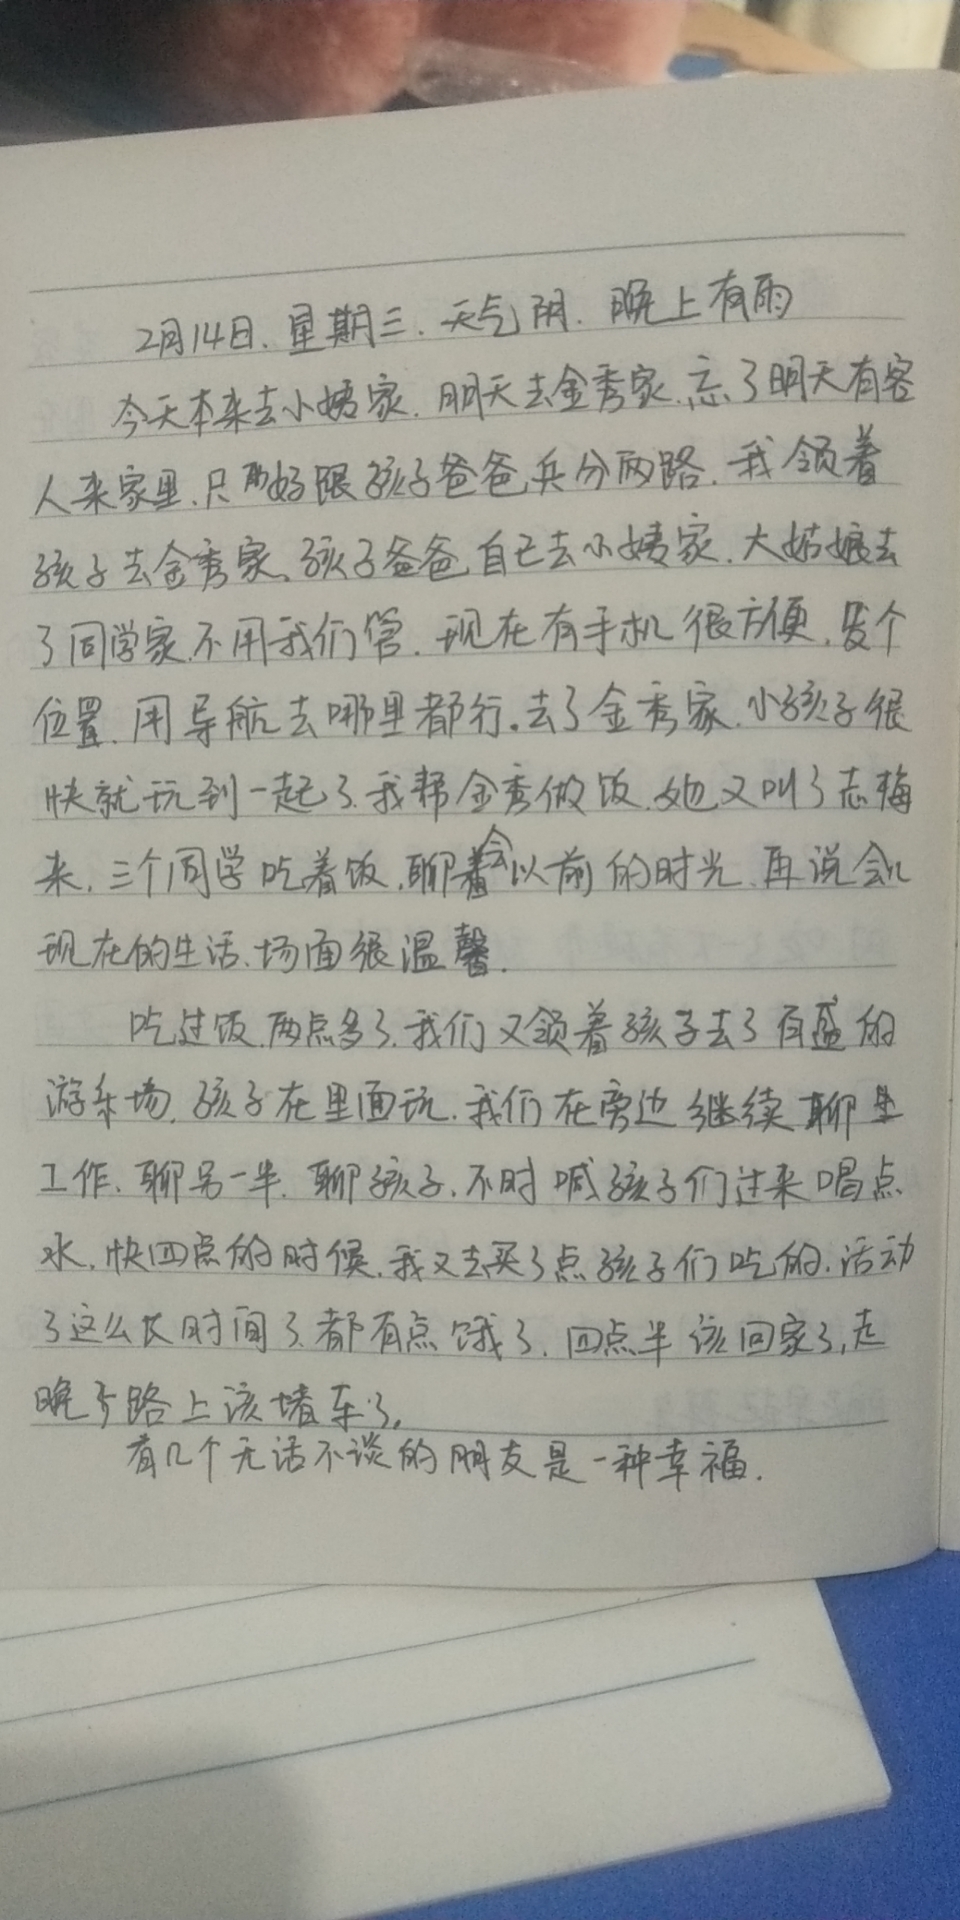 2月14日.星期三.天气阴.晚上有雨
今天本来去小姨家.明天去金秀家.忘了明天有客
人来家里.只好跟孩子爸爸兵分两路.我领着
孩子去金秀家.孩子爸爸自己去小姨家.大姑娘去
了同学家.不用我们管.现在有手机很方便.发个
位置.用导航去哪里都行。去了金秀家.小孩子很
快就玩到一起了.我帮金秀做饭.她又叫了志梅
来.三个同学吃着饭.聊会以前的时光.再说会儿
现在的生活.场面很温馨.
吃过饭.两点多了.我们又领着孩子去了百盛的
游乐场.孩子在里面玩.我们在旁边继续聊
工作.聊另一半.聊孩子.不时喊孩子们过来喝点
水.快四点的时候.我又去买了点孩子们吃的.活动
了这么长时间了.都有点饿了.四点半该回家了,走
晚了路上该堵车了.
有几个无话不谈的朋友是一种幸福.